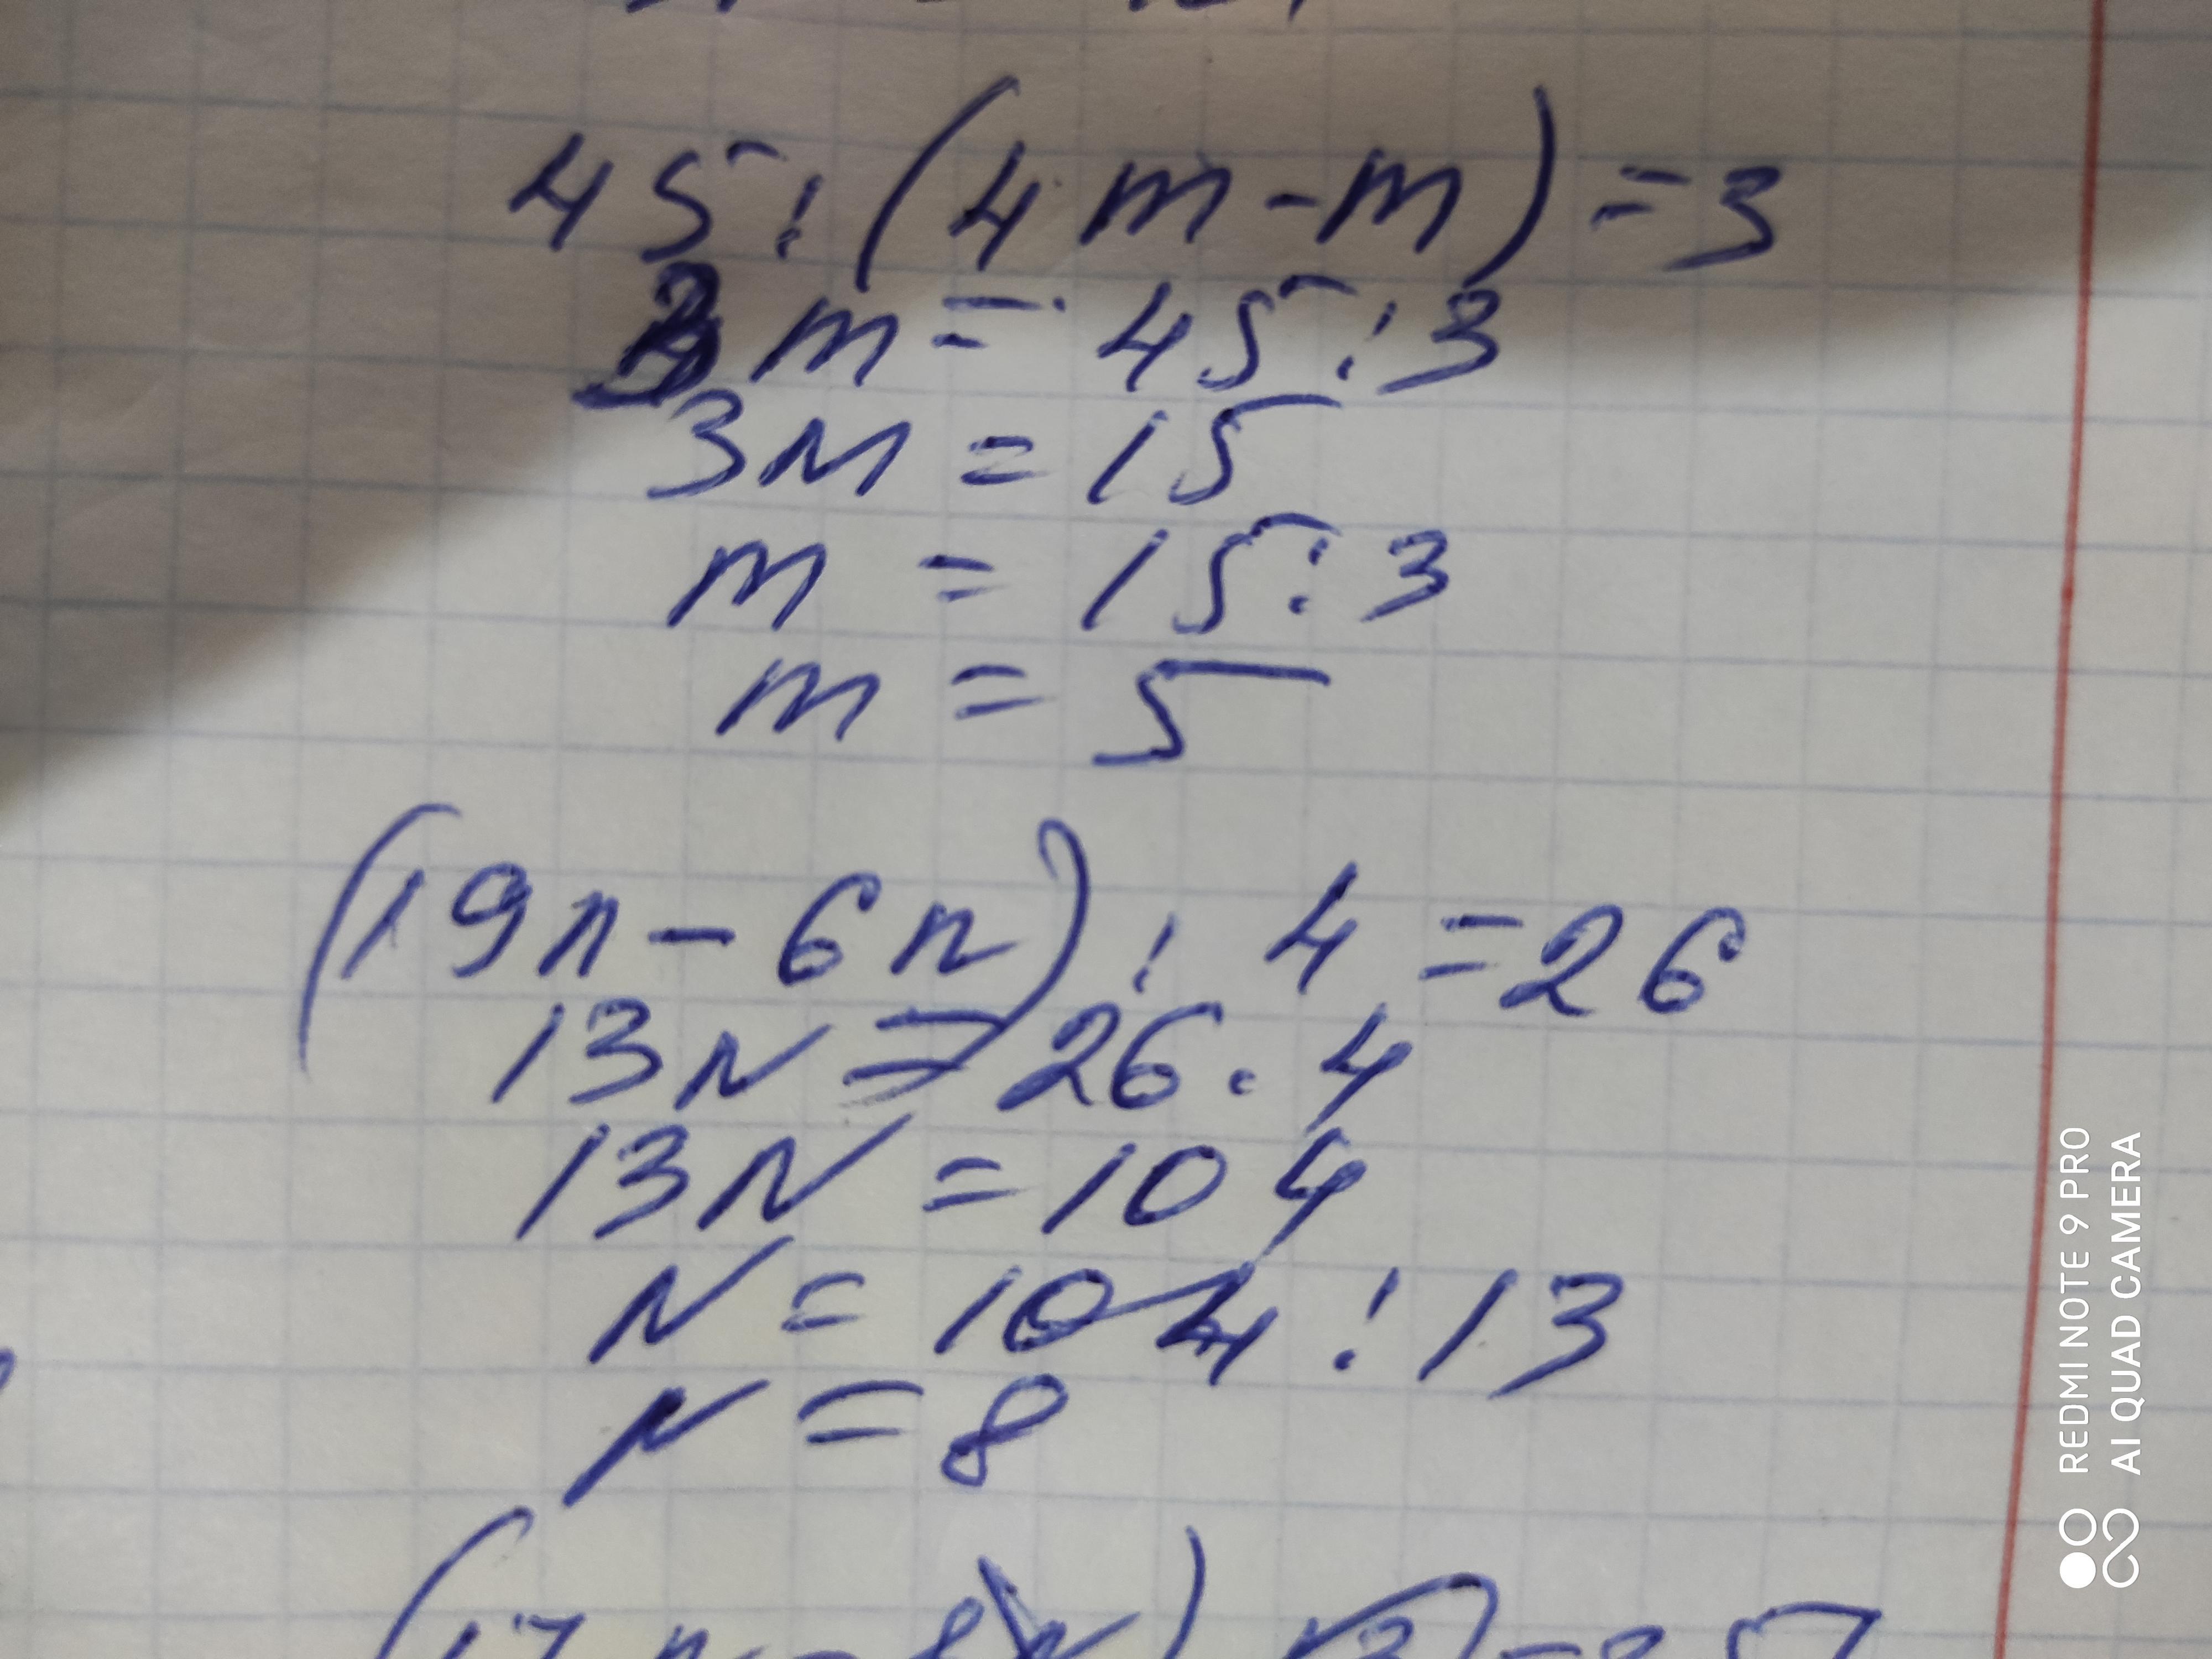 45:(4m-m)=3
3m=45:3
3m=15
m=15:3
m=5
(19n-6n):4=26
13n=26·4
13n=104
n=104:13
n=8
REDMI NOTE 9 PRO
AI QUAD CAMERA